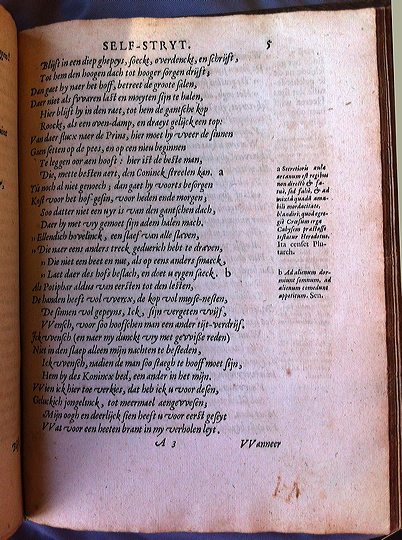 SELF-STRYT. 5
Blijft in een diep ghepeys, soeckt, overdenckt, en schrijft,
Tot hem den hoogen dach tot hooger sorgen drijft;
Dan gaet hy naer het hoff, betreet de groote salen,
Daer niet als swaren last en moeyten sijn te halen,
Hier blijft hy in den raet, tot hem de gantsche kop
Roockt, als een oven-damp, en draeyt gelijck een top:
Van daer flucx naer de Prins, hier moet hy weer de sinnen
Gaen setten op de pees, en op een nieu beginnen
Te leggen oor aen hooft: hier ist de beste man,
Die, mette besten aert, den Coninck streelen kan. a
Tis noch al niet genoech; dan gaet hy voorts besorgen
Kost voor het hof-gesin, voor heden ende morgen,
Soo datter niet een uyr is van den gantschen dach,
Daer by met wy gemoet sijn adem halen mach.
" Ellendich hovelinck, een slaef van alle slaven,
" Die naer eens anders treck geduerich hebt te draven,
" Die niet een beet en nut, als op eens anders smaeck,
" Laet daer des hofs beslach, en doet u eygen saeck. b
Als Potiphar aldus van eersten tot den lesten,
De handen heeft vol wercx, de kop vol muyse-nesten,
De sinnen vol gepeyns, Ick, sijn vergeten wijf,
Wensch, voor soo hoofschen man een ander tijt-verdrijf.
Ick wensch (en naer my dunckt wy met gewisse reden)
Niet in den slaep alleen mijn nachten te besteden,
Ick wensch, nadien de man soo staegh te hooff moet sijn,
Hem by des Konincx bed, een ander in het mijn.
Wien ick hier toe verkies, dat heb ick u voor desen,
Geluckich jongelinck, tot meermael aengewesen,
Mijn oogh en deerlijck sien heeft u voor eerst geseyt
Wat voor een heeten brant in my verholen leyt.
A 3 VVanneer
a Secretioris aula
arcanum est regibus
non directò &
sed falsò, & ad
mixtâ quadā amabili
mordacitate,
blandiri: quod egregiè
Cræsum erga
Cabysen præstasse
testatur Herodotus.
Ita censet Plutarch.
b Ad alienum dormiunt
somnum, ad
alienum comedunt
appetitum. Sen.